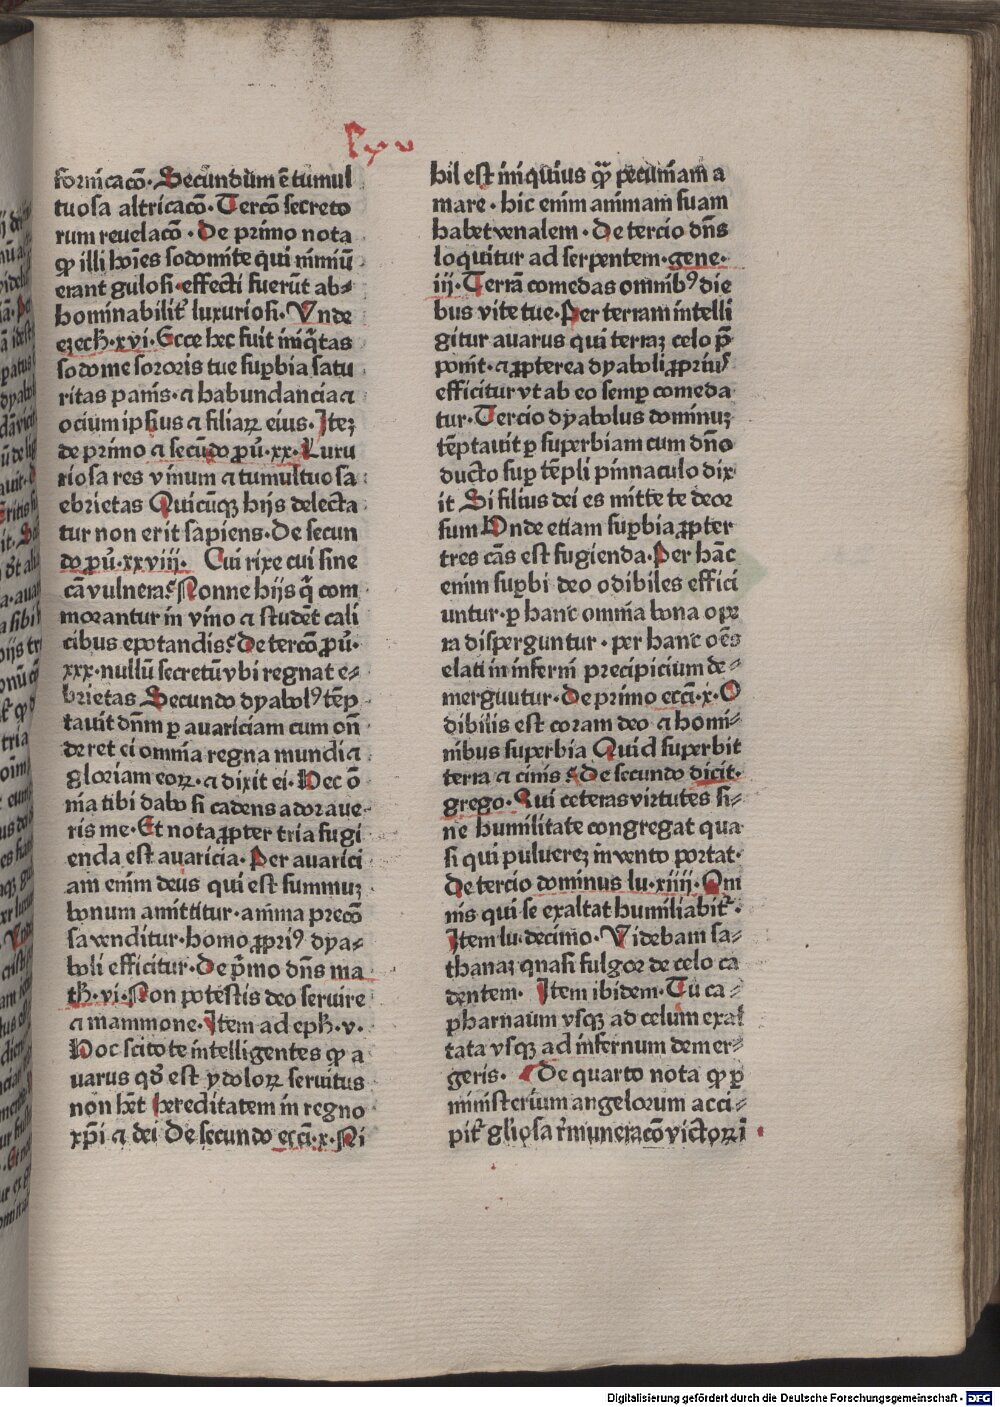 lxv
fornicacō. Secundum ē tumul
tuosa altricacō. Tercō secreto
rum reuelacō. De primo nota
ꝙ illi hoīes sodomite qui nimiū
erant gulosi effecti fuerūt ab⸗
hominabilit̄ luxuriosi. Vnde
ezech̄. xvi. Ecce hec fuit iniq̄tas
sodome sororis tue suꝑbia satu
ritas panis. ⁊ habundancia ⁊
ocium ipsius ⁊ filiaꝝ eius. Iteꝫ
de primo ⁊ secūdo ꝓū. xx. Luxu
riosa res vinum ⁊ tumultuosa
ebrietas Quicūqꝫ hijs delecta
tur non erit sapiens. De secun
do ꝓū. xxviii. Cui rixe cui sine
cā vulnera? Nonne hijs q̄ com
morantur in vino ⁊ studēt cali
cibus epotandis? De tercō ꝓū.
xxx. nullū secretū vbi regnat e⸗
brietas Secundo dyabolꝰ tēp
tauit dn̄m ꝑ auariciam cum on̄
deret ei omnia regna mundi ⁊
gloriam eoꝝ. ⁊ dixit ei. Hec ō
nia tibi dabo si cadens adoraue
ris me. Et nota ꝓpter tria fugi
enda est auaricia. Per auarici
am enim deus qui est summuꝫ
bonum amittitur. anima precō
sa venditur. homo ꝓpriꝰ dya⸗
boli efficitur. De p̄mo dn̄s ma
th̄. vi. Non potestis deo seruire
⁊ mammone. Item ad eph̄. v.
Hoc scitote intelligentes ꝙ a
uarus qd̄ est ydoloꝝ seruitus
non h̄et hereditatem in regno
xp̄i ⁊ dei De secundo ecc̄i. x. Ni
hil est iniquius qᷓ pecuniam a
mare. hic enim animam suam
habet venalem. De tercio dn̄s
loquitur ad serpentem. gene.
iij. Terrā comedas omnibꝰ die
bus vite tue. Per terram intelli
gitur auarus qui terraꝫ celo p̄
ponit. ⁊ ꝓpterea dyaboli ꝓpriuꝰ
efficitur vt ab eo semꝑ comeda
tur. Tercio dyabolus dominuꝫ
tēptauit ꝑ superbiam cum dn̄o
ducto suꝑ tēpli pinnaculo dix
it Si filius dei es mitte te deor
sum Vnde etiam suꝑbia ꝓpter
tres cās est fugienda. Per hāc
enim suꝑbi deo odibiles effici
untur. ꝑ hanc omnia bona ope
ra disperguntur. per hanc oēs
elati in inferni precipicium de⸗
merguutur. De primo ecc̄i. x. O
dibilis est coram deo ⁊ homi⸗
nibus superbia Quid superbit
terra ⁊ cinis? De secundo dicit.
grego. Qui ceteras virtutes si⸗
ne humilitate congregat qua
si qui puluereꝫ in vento portat.
De tercio dominus lu. xiiii. Om
nis qui se exaltat humiliabit̄.
Item lu. decimo. Videbam sa⸗
thanaꝫ quasi fulgor de celo ca
dentem. Item ibidem. Tu ca⸗
pharnaum vsqꝫ ad celum exal
tata vsqꝫ ad infernum demer⸗
geris. De quarto nota ꝙ ꝑ
ministerium angelorum acci⸗
pit̄ gliosa r̄muneracō victoꝝ ī
Digitalisierung gefördert durch die Deutsche Forschungsgemeinschaft - DFG